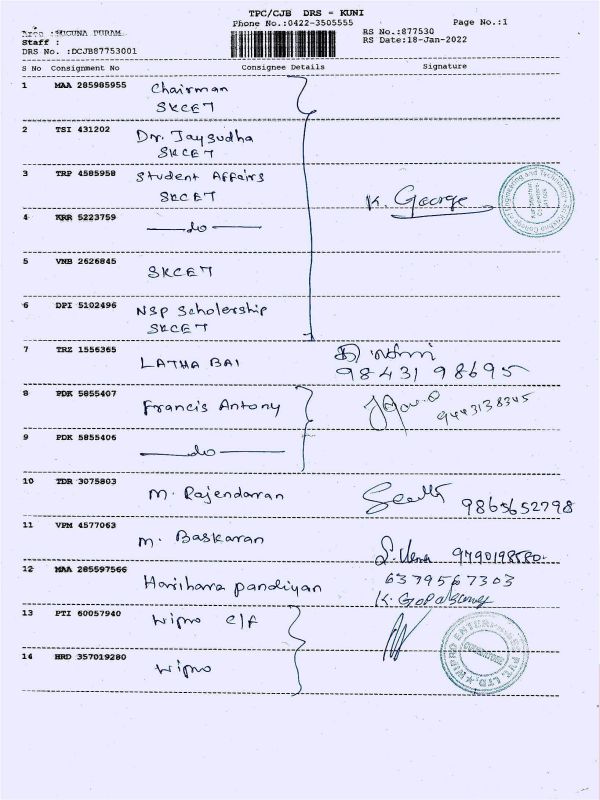 TPC/CJB DRS - KUNI
Phone No.:0422-3505555 Page No.:1
Area :SUGUNA PURAM RS No.:877530
Staff : RS Date:18-Jan-2022
DRS No. :DCJB87753001
S No Consignment No Consignee Details Signature
1 MAA 285985955 Chairman
SKCET
2 TSI 431202 Dr. Jaysudha
SKCET
3 TRP 4585958 Student Affairs
SKCET K. George
4 KRR 5223759 do
5 VNB 2626845 SKCET
6 DPI 5102496 NSP Scholership
SKCET
7 TRZ 1556365 LATHA BAI
98431 98695
8 PDK 5855407 Francis Antony 9443138345
9 PDK 5855406 do
10 TDR 3075803 M. Rajendaran 9865652798
11 VPM 4577063 M. Baskaran 9790198580
12 MAA 285597566 Harihara pandiyan 6379567303
13 PTI 60057940 Wipro C/F
14 HRD 357019280 Wipro
WIPRO ENTERPRISES PVT. LTD.